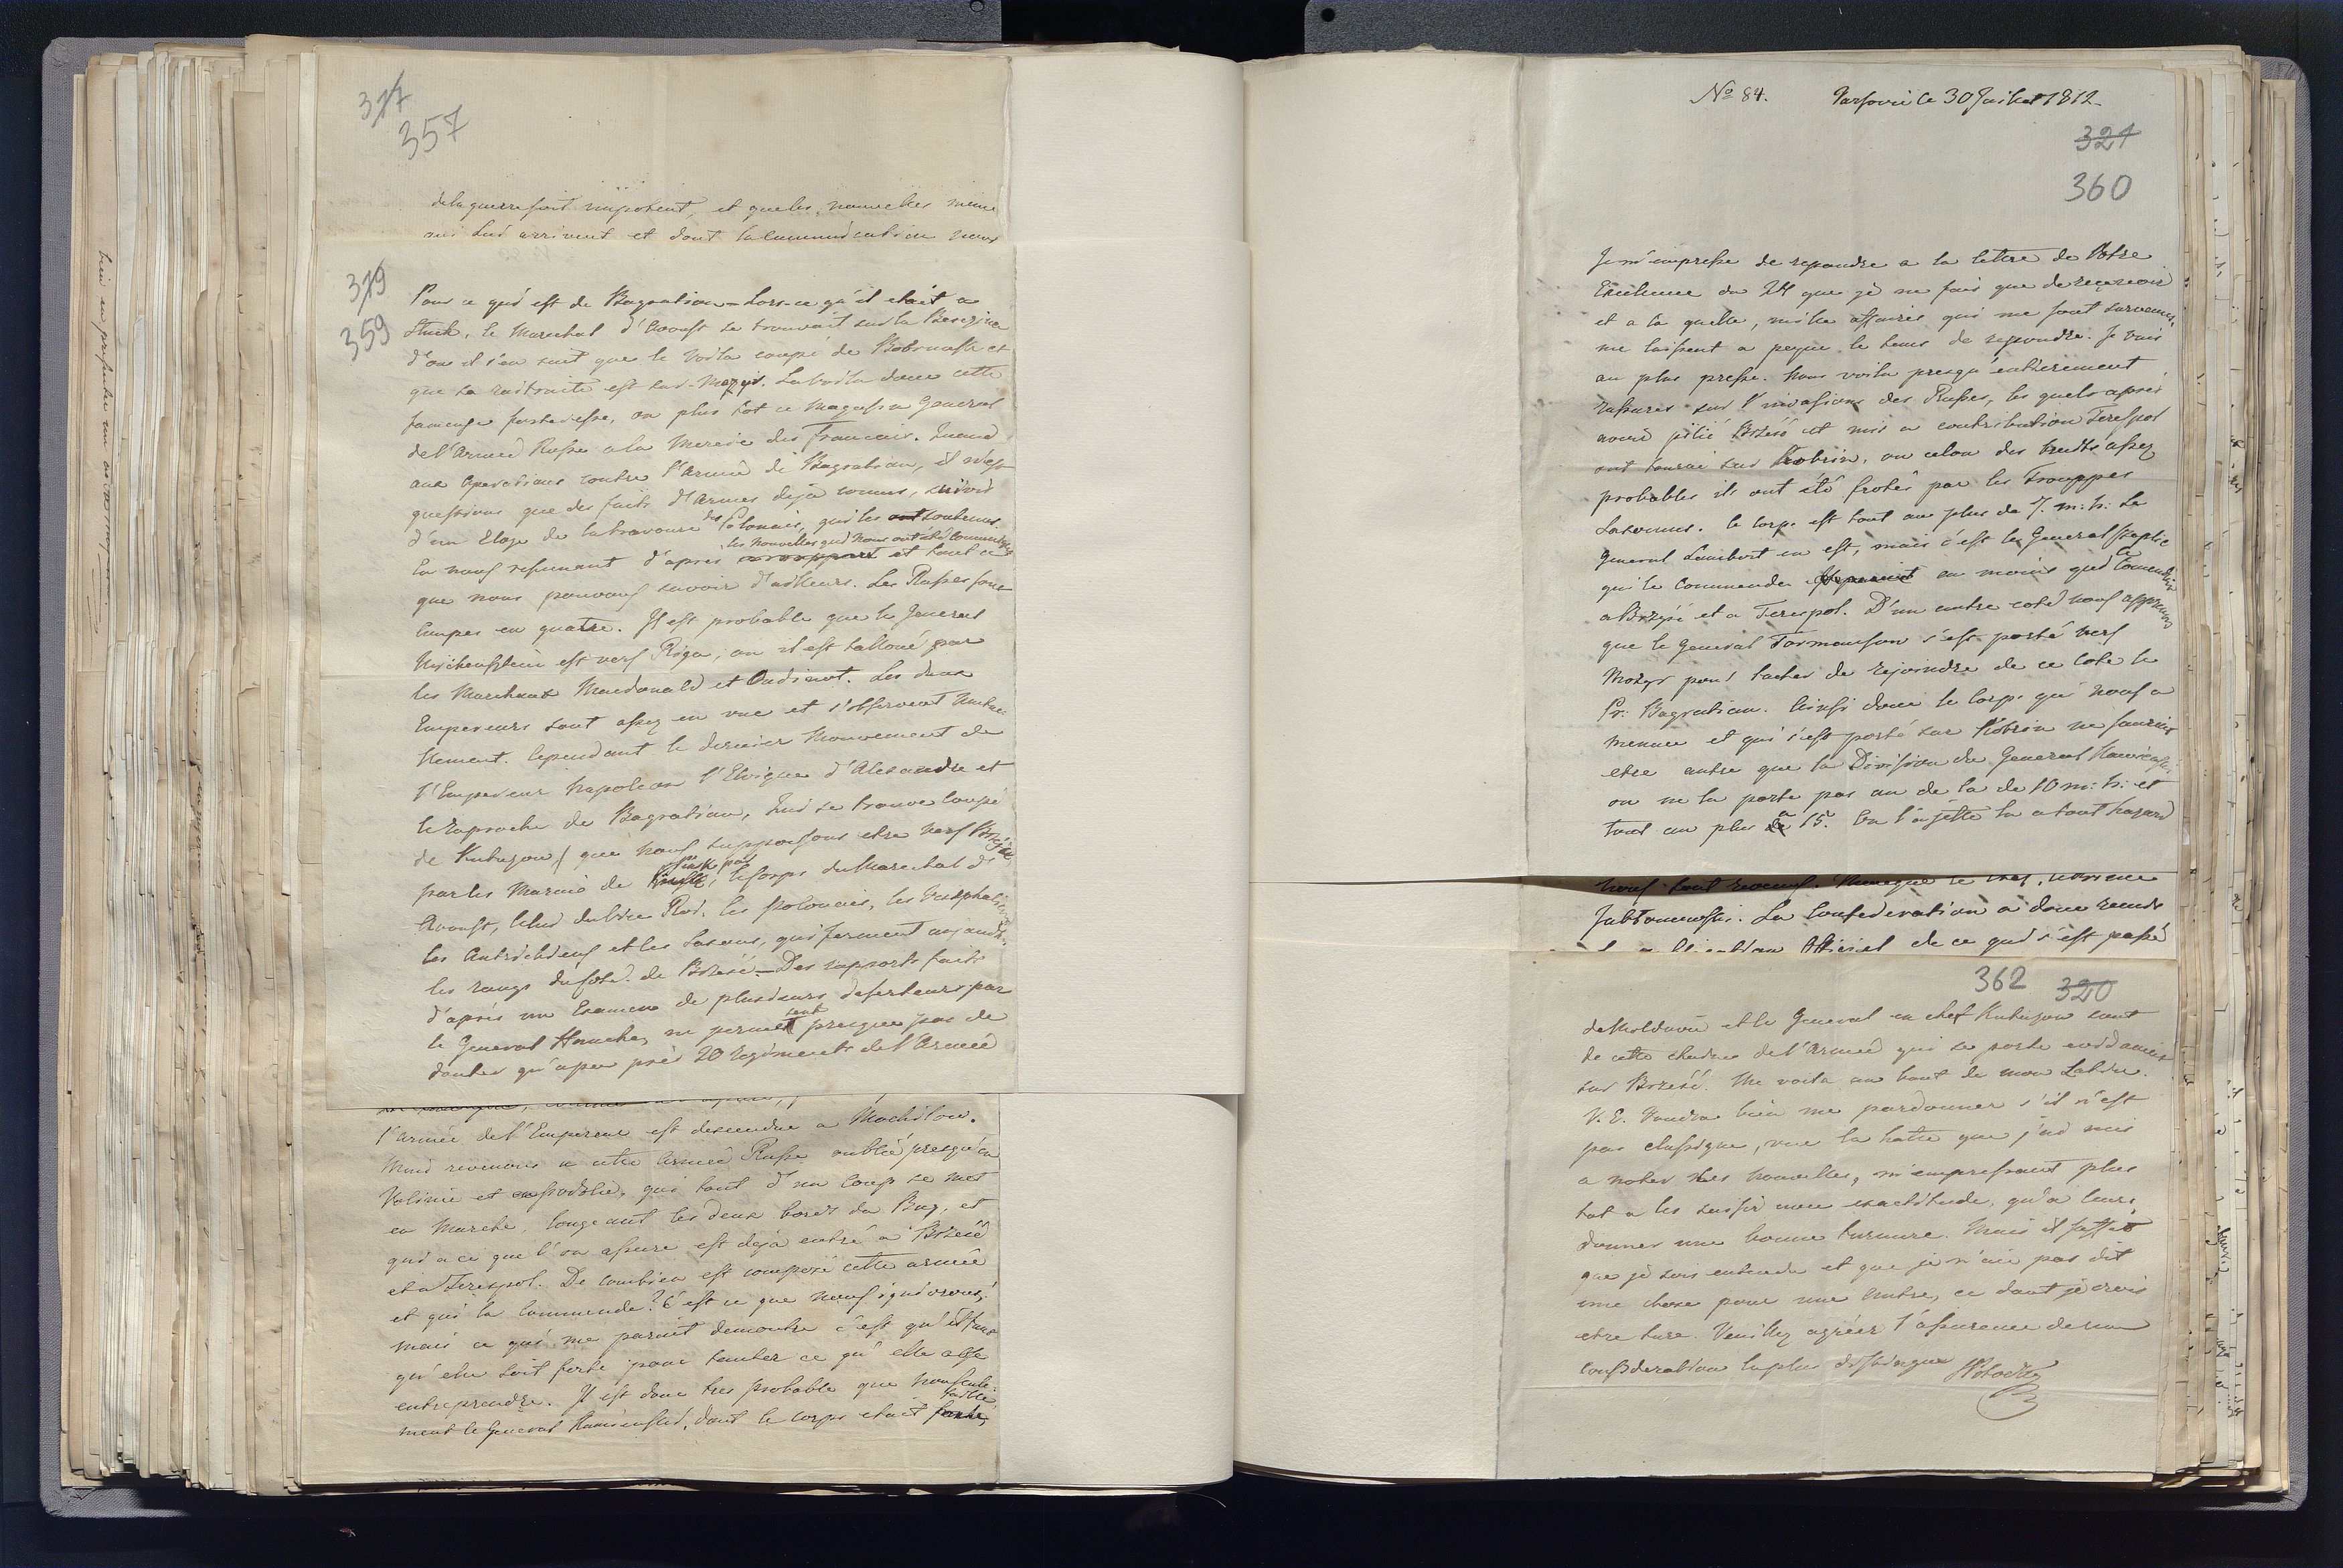 317
357
de la guerre soit important, et queles nouvelles même
qui lui arrivent et dont la communication nous
319
359
Pour ce qui est de Bagration – Lors-ce qu'il etait a
Stuck, le Marechal d'Avoust se trouvait sur la Beresina
d'ou il s'en suit que le voila coupé de Bobruisk et
que sa raitraite est sur Mozyr. La voila donc cette
fameuse forteresse, ou plus tot ce Magasin General
de l'Armée Russe a la Mercie des Francais. Quand
aux Operations contre l'Armée de Bagration, il n'est
questions que des faits d'Armes deja connus, suivis
d'un Eloge de la bravoure des Polonais, qui les ont soutenus.
les Nouvelles qui nous ont été communiqué
En nous resumant d'apres ce rapport et tout ce
que nous pouvons savoir d'ailleurs. Les Russes sont
Coupés en quatre. Il est probable que le General
est vers Riga, ou il est talloné par
les Marechaux Macdonald et Oudinot. Les deux
Empereurs sont assez en vue et s'observent Mutuel
lement. Cependant le dernier Mouvement de
l'Empereur Napoleon l'Eloigne d'Alexandre et
le raproche de Bagration, Qui se trouve Coupé
de Kutuzow (que nous supposons etre vers Brzesc
par les Marais de Pinsk par le Corps du Marechal d'
Avoust, Celui du Vice Roi, les Polonais, les Vestphaliens
les Autrichiens et les Saxons, qui forment aujourd'
les rangs du Coté de Brzesc – Des rapports faits
d'après un Examen de plusieurs deserteurs par
le General ne permettent presque pas de
douter qu'a peu près 20 regiments de l'Armée
l'armée de l'Empereur est descendue a Mochilow.
Mais revenons a cette Armée Russe oubliée presqu'en
Volinie et en Podolie, qui tout d'un Coup se met
en Marche, longeant les deux bords du Bug, et
qui a ce que l'on assure est deja entré a Brzesc
et a Terespol. De combien est composée cette armée
et qui la Commande? C'est ce que nous ignorons,
mais ce qui me parait demontre c'est qu'il faut
qu'elle soit forte pour tenter ce qu'elle ose
entreprendre. Il est donc tres probable que nonseule-
ment le General Kamienski, dont le corps etait faible
No 84. Varsovie le 30 Juillet 1812.
321
360
Je m'empresse de repondre a la lettre de Votre
Excellence du 24 que je ne fais que de reçevoir
et a la quelle, mille affaires qui me sont survenues,
me laissent a peyne le tems de repondre. Je vais
au plus pressé. Nous voila presqu'entierement
rassurés sur l'invasions des Russes, les quels après
avoir pillié Brzesc et mis a contribution Terespol
ont tourné sur Kobrin, ou celon des bruits assez
probables ils ont été frotés par les Trouppes
Saxonnes. Ce Corps est tout au plus de 7. m: h: Le
General Lambert en est, mais c'est le General
qui le Commande, du moins qui le Comendait
a Brzesc et a Terespol. D'un autre coté nous apprenons
que le General Tormansow s'est porté vers
Mozyr pour tacher de rejoindre de ce Cote le
Pr: Bagration. Ainsi donc le Corps qui nous a
menacé et qui s'est porté sur Kobrin ne saurait
etre autre que la Division du General Kamienski
on ne la porte pas au de la de 10 m: h: et
tout au plus a 15. On l'a jetté la a tout hazard
Jablonowski. La Confederation a donc rendu
Officiel de ce qui s'est passé
362 320
de Moldavie et le General en chef Kutuzow sont
de cette de l'Armée qui se porte
sur Brzesc. Me voila au bout de mon Latin.
V. E. voudra bien me pardonner s'il n'est
pas classique, vue la hatte que j'ai mis
a noter mes nouvelles, m'empressant plus
tot a les saisir avec exactitude, qu'a leurs
donner une bonne turnure. Mais il suffit
que je sois entendu et que je n'aie pas dit
une chose pour une Autre, ce dont je crois
etre sure. Veuillez agréer l'assurence de ma
Consideration la plus distingue